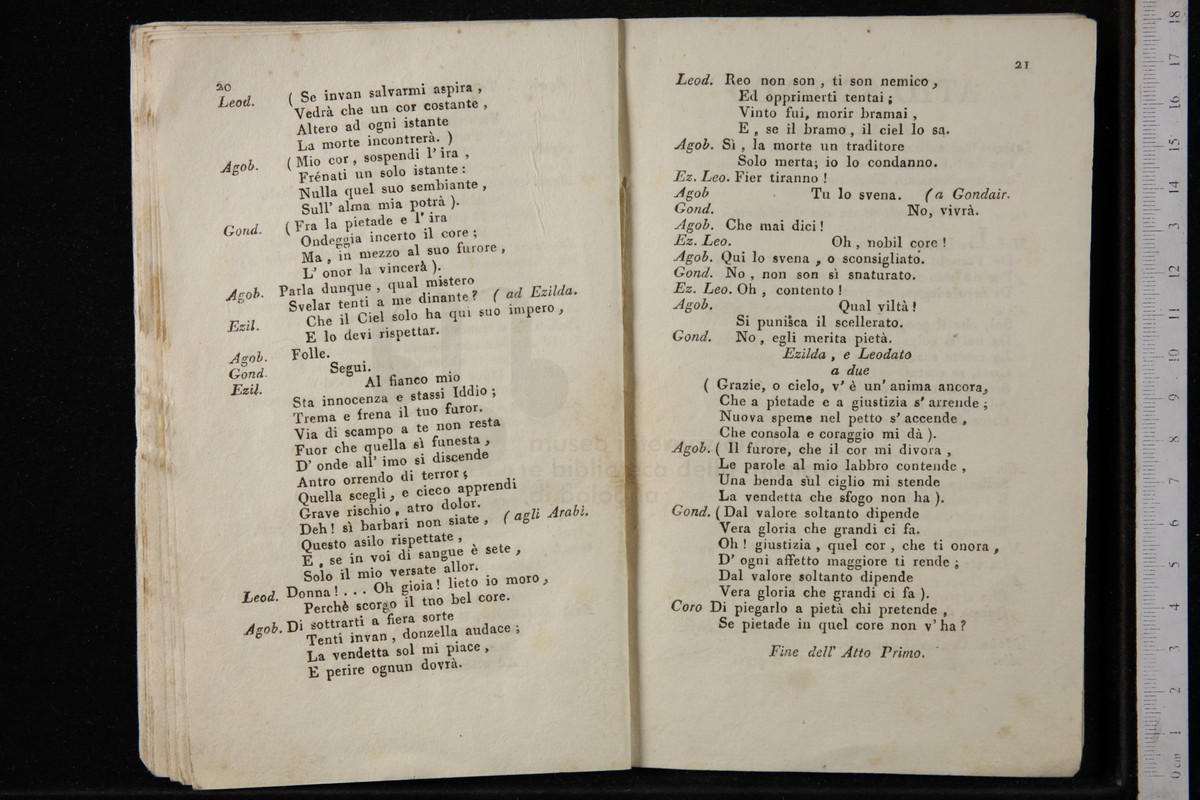 20
Leod. ( Se invan salvarmi aspira ,
Vedrà che un cor costante ,
Altero ad ogni istante
La morte incontrerà. )
Agob. ( Mio cor , sospendi l' ira ,
Frénati un solo istante :
Nulla quel suo sembiante ,
Sull' alma mia potrà ).
Gond. ( Fra la pietade e l' ira
Ondeggia incerto il core ;
Ma , in mezzo al suo furore ,
L' onor la vincerà ).
Agob. Parla dunque , qual mistero
Svelar tenti a me dinante ? ( ad Ezilda.
Ezil. Che il Ciel solo ha qui suo impero ,
E lo devi rispettar.
Agob. Folle.
Gond. Segui.
Ezil. Al fianco mio
Sta innocenza e stassi Iddio ;
Trema e frena il tuo furor.
Via di scampo a te non resta
Fuor che quella sì funesta ,
D' onde all' imo si discende
Antro orrendo di terror ;
Quella scegli , e cieco apprendi
Grave rischio , atro dolor.
Deh ! sì barbari non siate , ( agli Arabi.
Questo asilo rispettate ,
E , se in voi di sangue è sete ,
Solo il mio versate allor.
Leod. Donna ! . . . Oh gioia ! lieto io moro ,
Perchè scorgo il tno bel core.
Agob. Di sottrarti a fiera sorte
Tenti invan , donzella audace ;
La vendetta sol mi piace ,
E perire ognun dovrà.
21
Leod. Reo non son , ti son nemico ,
Ed opprimerti tentai ;
Vinto fui, morir bramai ,
E , se il bramo , il ciel lo sa.
Agob. Sì , la morte un traditore
Solo merta; io lo condanno.
Ez. Leo. Fier tiranno !
Agob Tu lo svena. ( a Gondair.
Gond. No, vivrà.
Agob. Che mai dici !
Ez. Leo. Oh , nobil core !
Agob. Qui lo svena , o sconsigliato.
Gond. No , non son sì snaturato.
Ez. Leo. Oh , contento !
Agob. Qual viltà !
Si punisca il scellerato.
Gond. No , egli merita pietà.
Ezilda , e Leodato
a due
( Grazie, o cielo, v' è un' anima ancora,
Che a pietade e a giustizia s' arrende ;
Nuova speme nel petto s' accende ,
Che consola e coraggio mi dà ).
Agob. ( Il furore, che il cor mi divora ,
Le parole al mio labbro contende ,
Una benda sul ciglio mi stende
La vendetta che sfogo non ha ).
Gond. ( Dal valore soltanto dipende
Vera gloria che grandi ci fa.
Oh ! giustizia , quel cor , che ti onora ,
D' ogni affetto maggiore ti rende ;
Dal valore soltanto dipende
Vera gloria che grandi ci fa ).
Coro Di piegarlo a pietà chi pretende ,
Se pietade in quel core non v' ha ?
Fine dell' Atto Primo.